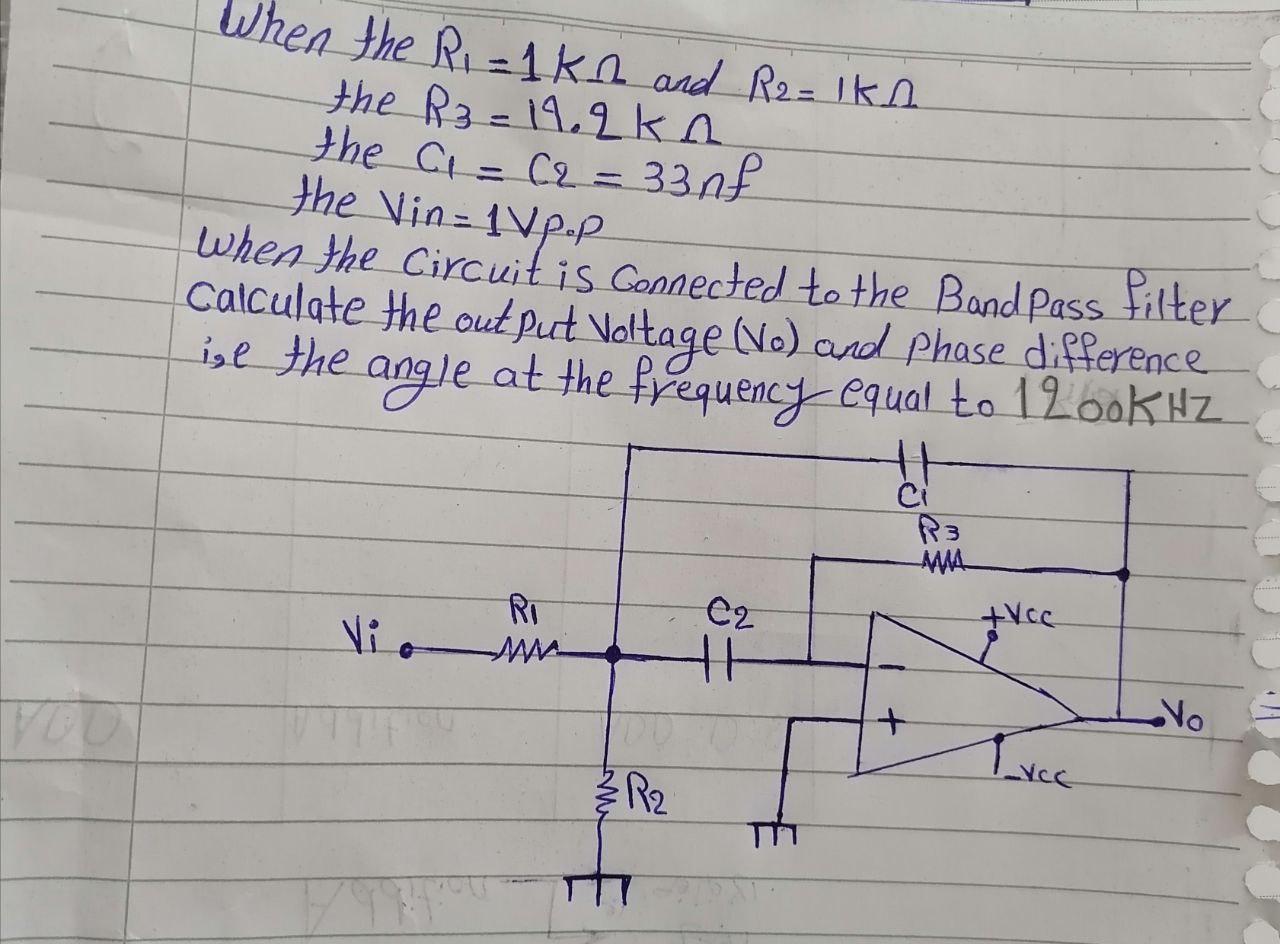 When the R1 = 1 KΩ and R2 = 1KΩ
the R3 = 19.2 KΩ
the C1 = C2 = 33nf
the Vin = 1Vp.p
When the Circuit is Connected to the Band Pass filter
Calculate the output Voltage (Vo) and Phase difference
i.e the angle at the frequency equal to 1200KHZ
C1
R3
R1
C2
+Vcc
Vi
-
+
Vo
-Vcc
R2